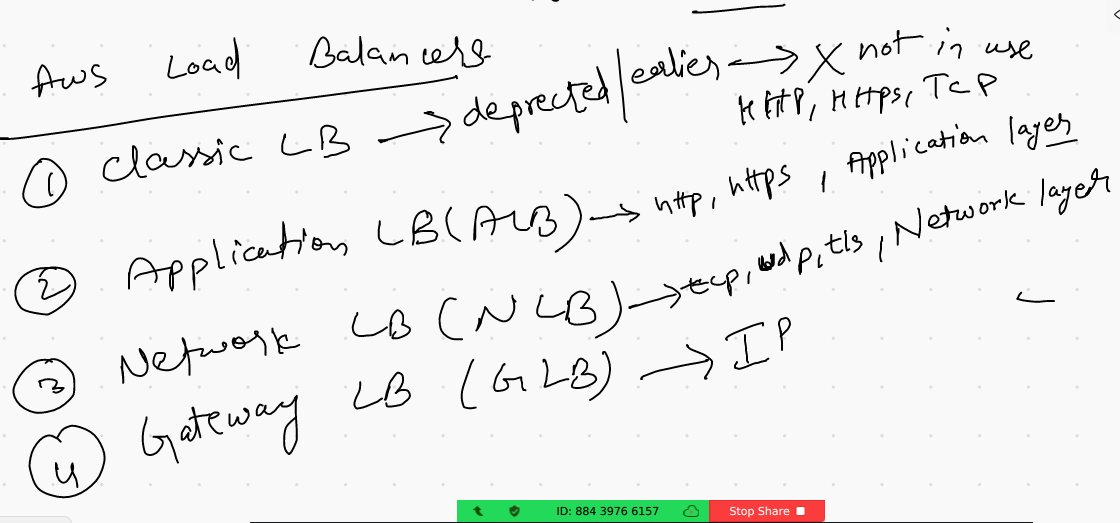 Aws Load Balancers
① Classic LB → deprected/earlier → X not in use
HTTP, HTTPS, TCP
② Application LB (ALB) → http, https, Application layer
③ Network LB (NLB) → tcp, udp, tls, Network layer
④ Gateway LB (GLB) → IP
ID: 884 3976 6157 Stop Share